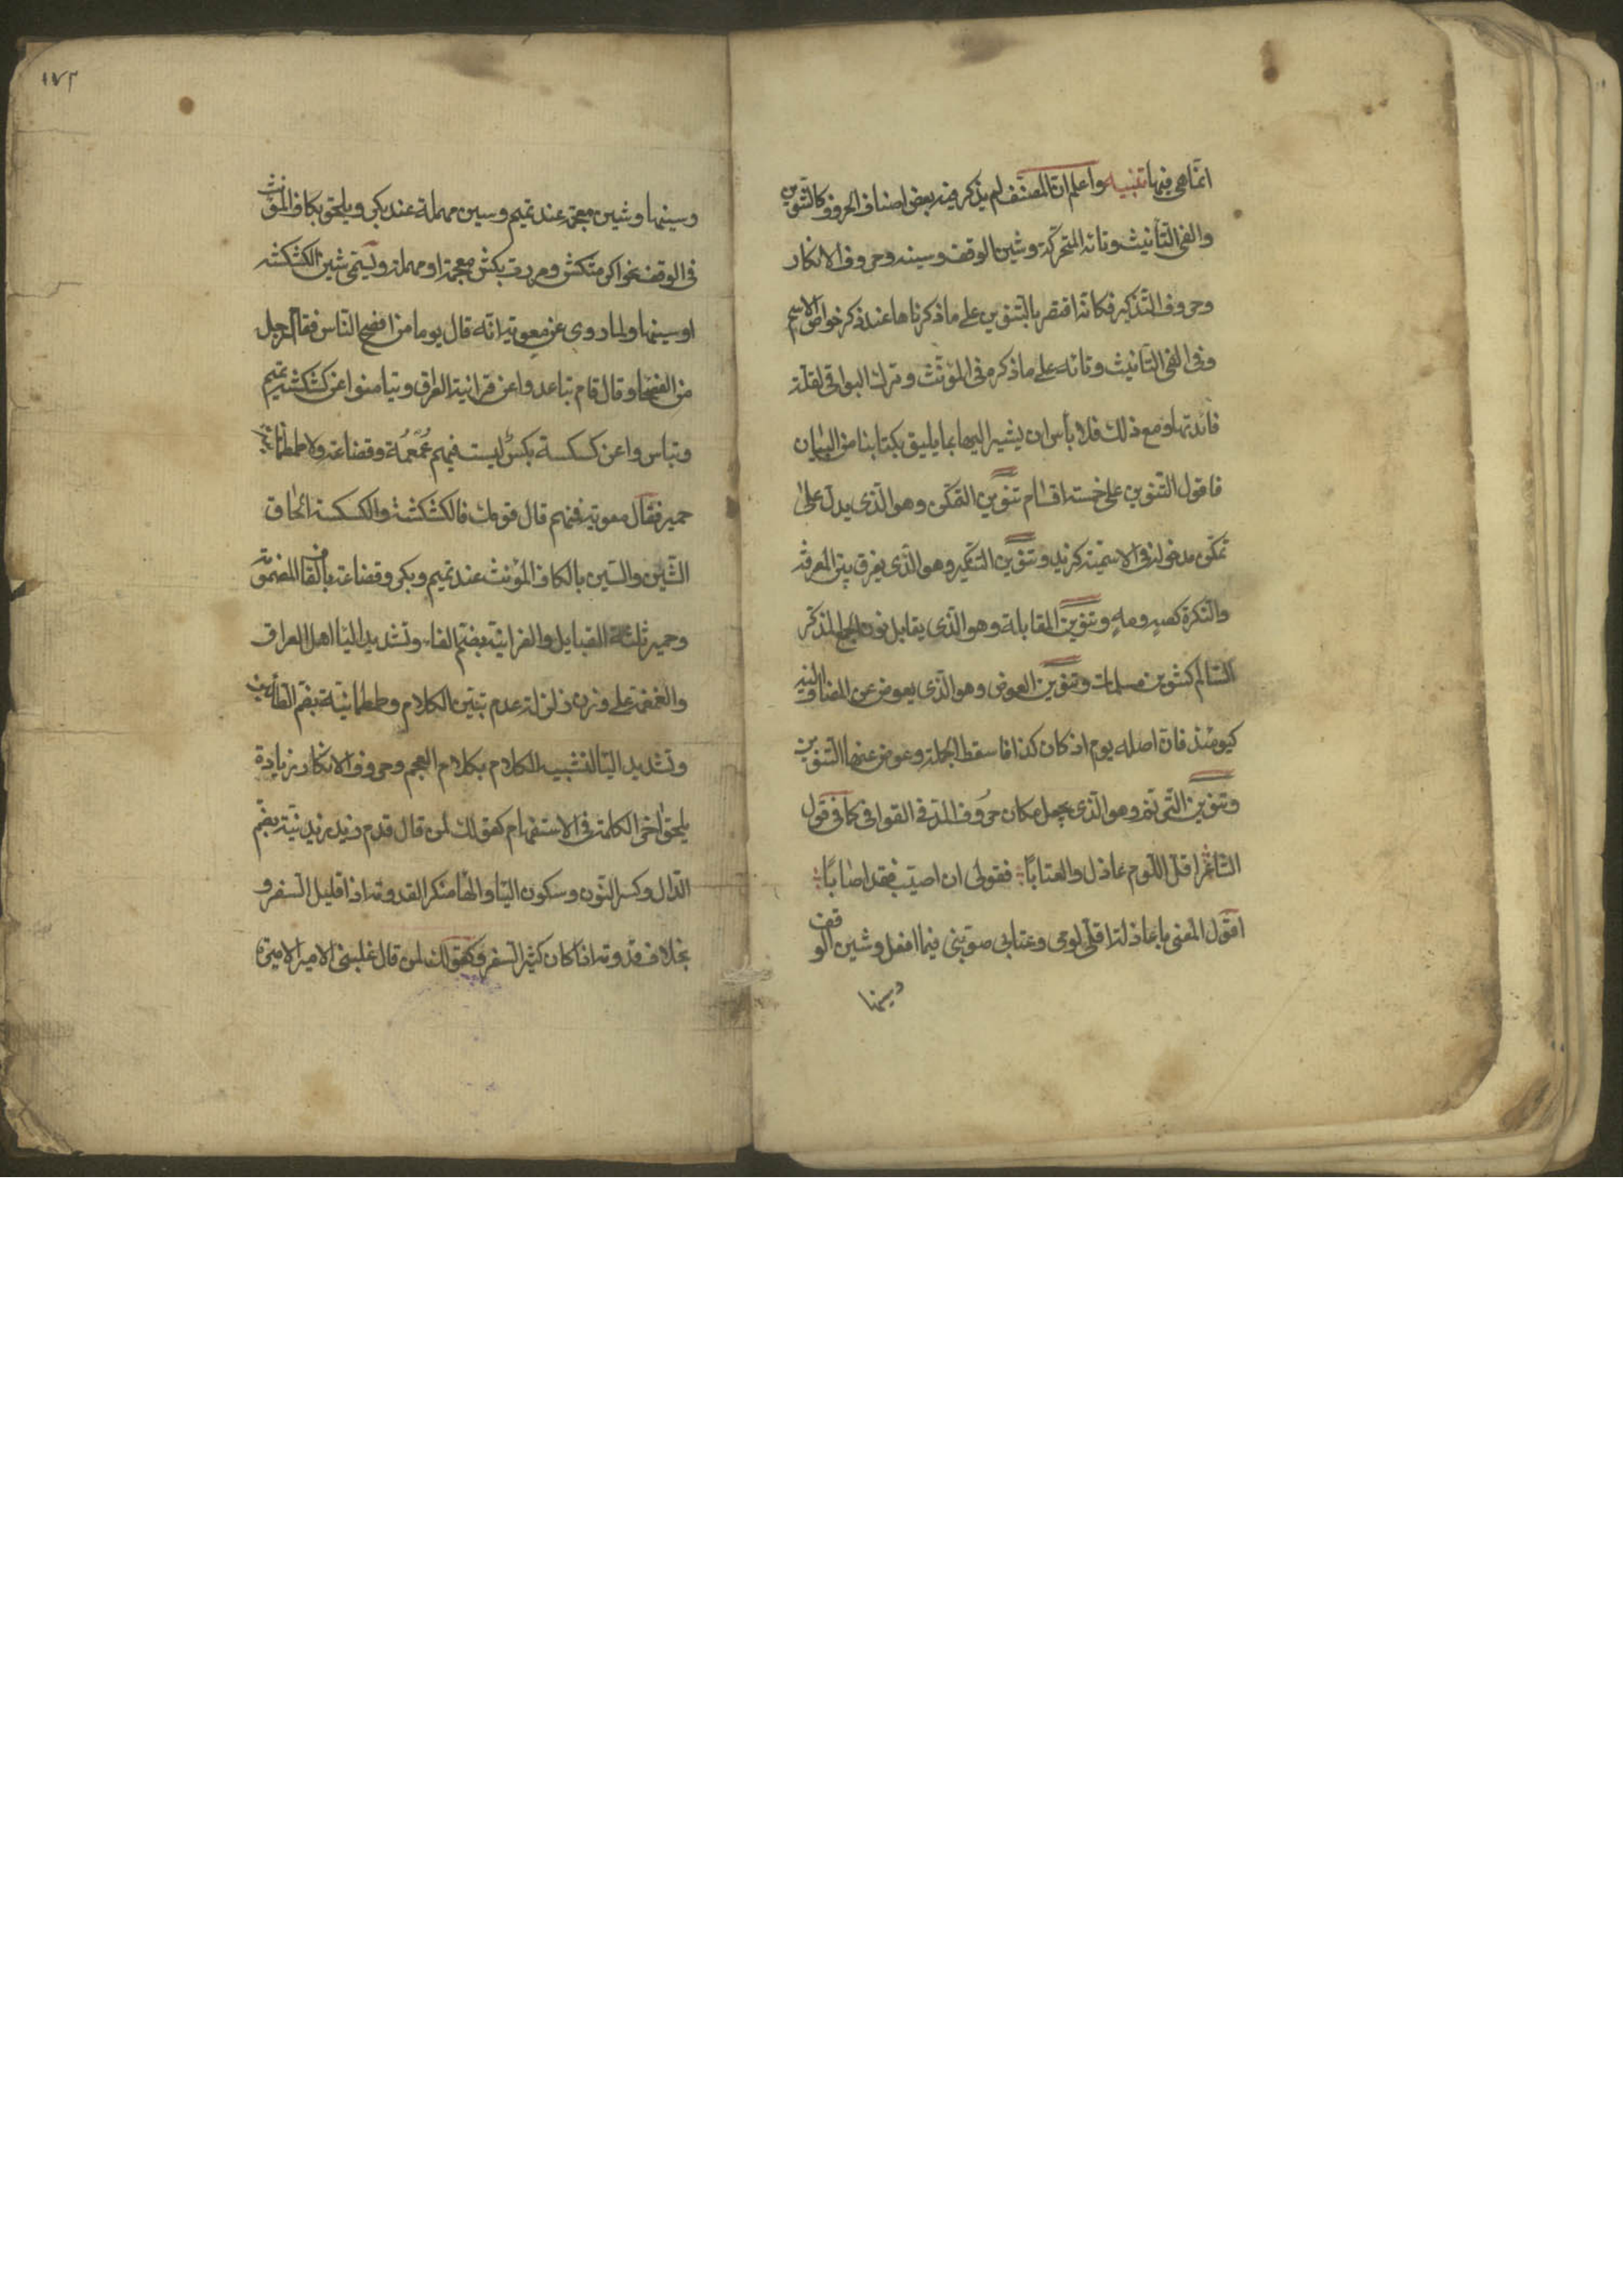 انما هي فيها تنبيه واعلم ان المصنف لم يذكر فيه بعض اصناف الحروف كالتنوين
والفي التأنيث وتائه المتحركة وشين الوقف وسينه وحروف الانكار
وحروف التذكير فكانه اقتصر بالتنوين على ما ذكرناها عند ذكر خواص الاسم
وفي الفي التأنيث وتائه على ما ذكره في المؤنث وترك البواقي لقلة
فائدتها ومع ذلك فلا بأس ان يشير اليها بما يليق بكتابنا من البيان
فاقول التنوين على خمسة اقسام تنوين التمكن وهو الذي يدل على
تمكن مدخوله في الاسمية كزيد وتنوين التنكير وهو الذي يفرق بين المعرفة
والنكرة كصه ومه وتنوين المقابلة وهو الذي يقابل نون الجمع المذكر
السالم كتنوين مسلمات وتنوين العوض وهو الذي يعوض عن المضاف اليه
كيومئذ فان اصله يوم اذ كان كذا فاسقط الجملة وعوض عنها التنوين
وتنوين الترنم وهو الذي يجعل مكان حروف المد في القوافي كما في قول
الشاعر اقل اللوم عاذل والعتابا فقولي ان اصبت فقد اصابا
اقول المعنى يا عاذلة اقلي لومي وعتابي صوبني فيما افعل وشين الوقف
وسينها
١٧٢
وسينها وشين معجمة عند تميم وسين مهملة عند بكر ويلحق بكاف المؤنث
في الوقف نحو اكرمتكش ومررت بكش معجمة او مهملة وتسمى شين الكشكشة
او سينها ولما روى عن معوية انه قال يوما من افصح الناس فقال رجل
من الفصحا وقال قام تباعدوا عن فراتية العراق وتيامنوا عن كشكشة تميم
وتياسروا عن كسكسة بكر ليست فيهم غمغمة وقضاعة ولا طمطمانية
حمير فقال معوية فمنهم قال قومك فالكشكشة والكسكسة الحاق
الشين والسين بالكاف المؤنث عند تميم وبكر وقضاعة بالقاف المضمومة
وحمير ثلثة القبايل والفراتية بضم الفاء وتشديد اليا اهل العراق
والغمغمة على وزن زلزلة عدم تبين الكلام وطمطمانية بضم الطائين
وتشديد اليا لتشبيه الكلام بكلام العجم وحروف الانكار زيادة
يلحق اخر الكلمة في الاستفهام كقولك لمن قال قدم زيد ازيدنيه بضم
الدال وكسر النون وسكون اليا والها منكرا لقدومه اذا قليل السفر و
بخلاف قدومه اذا كان كثير السفر وكقولك لمن قال غلبني الامير الاميره